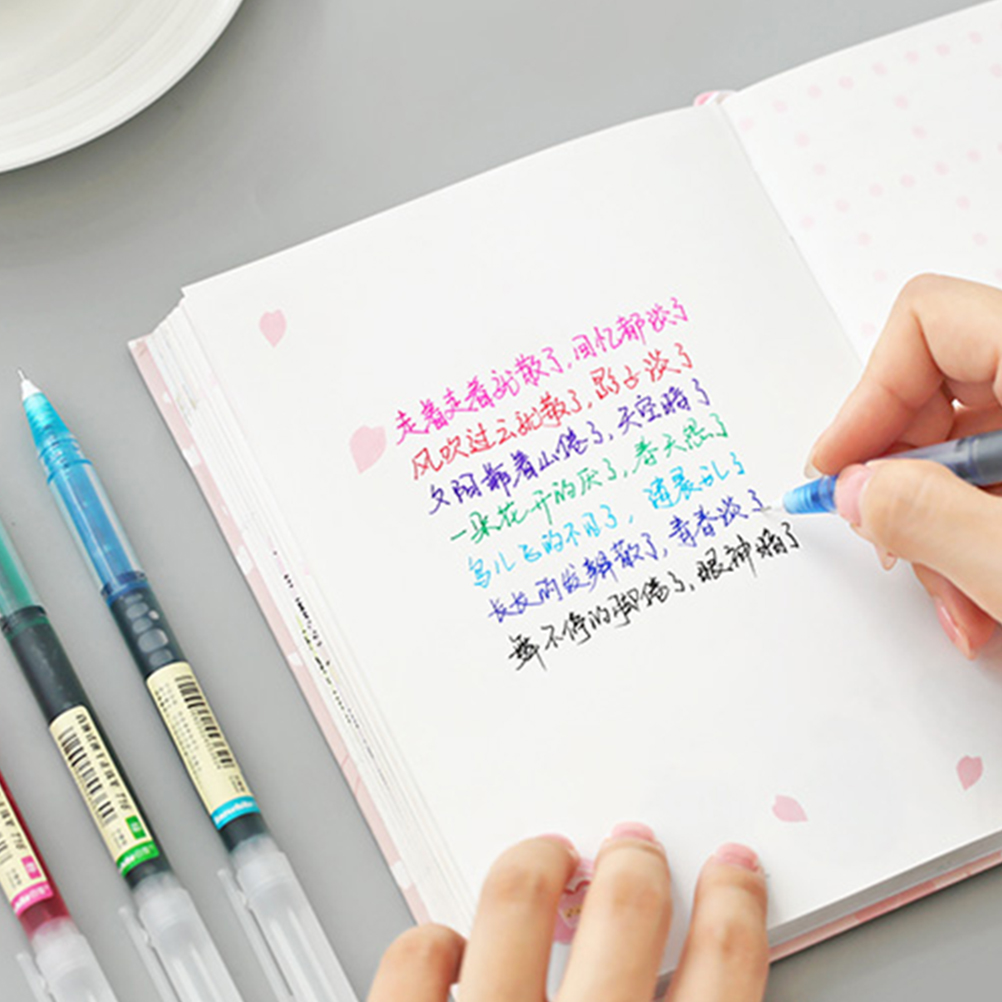 走着走着就散了，回忆都淡了
风吹过云就散了，影子淡了
夕阳靠着山倦了，天空暗了
一朵花开的厌了，春天怨了
鸟儿飞的不见了，清晨乱了
长长的发辫散了，青春淡了
舞不停的脚倦了，眼神暗了